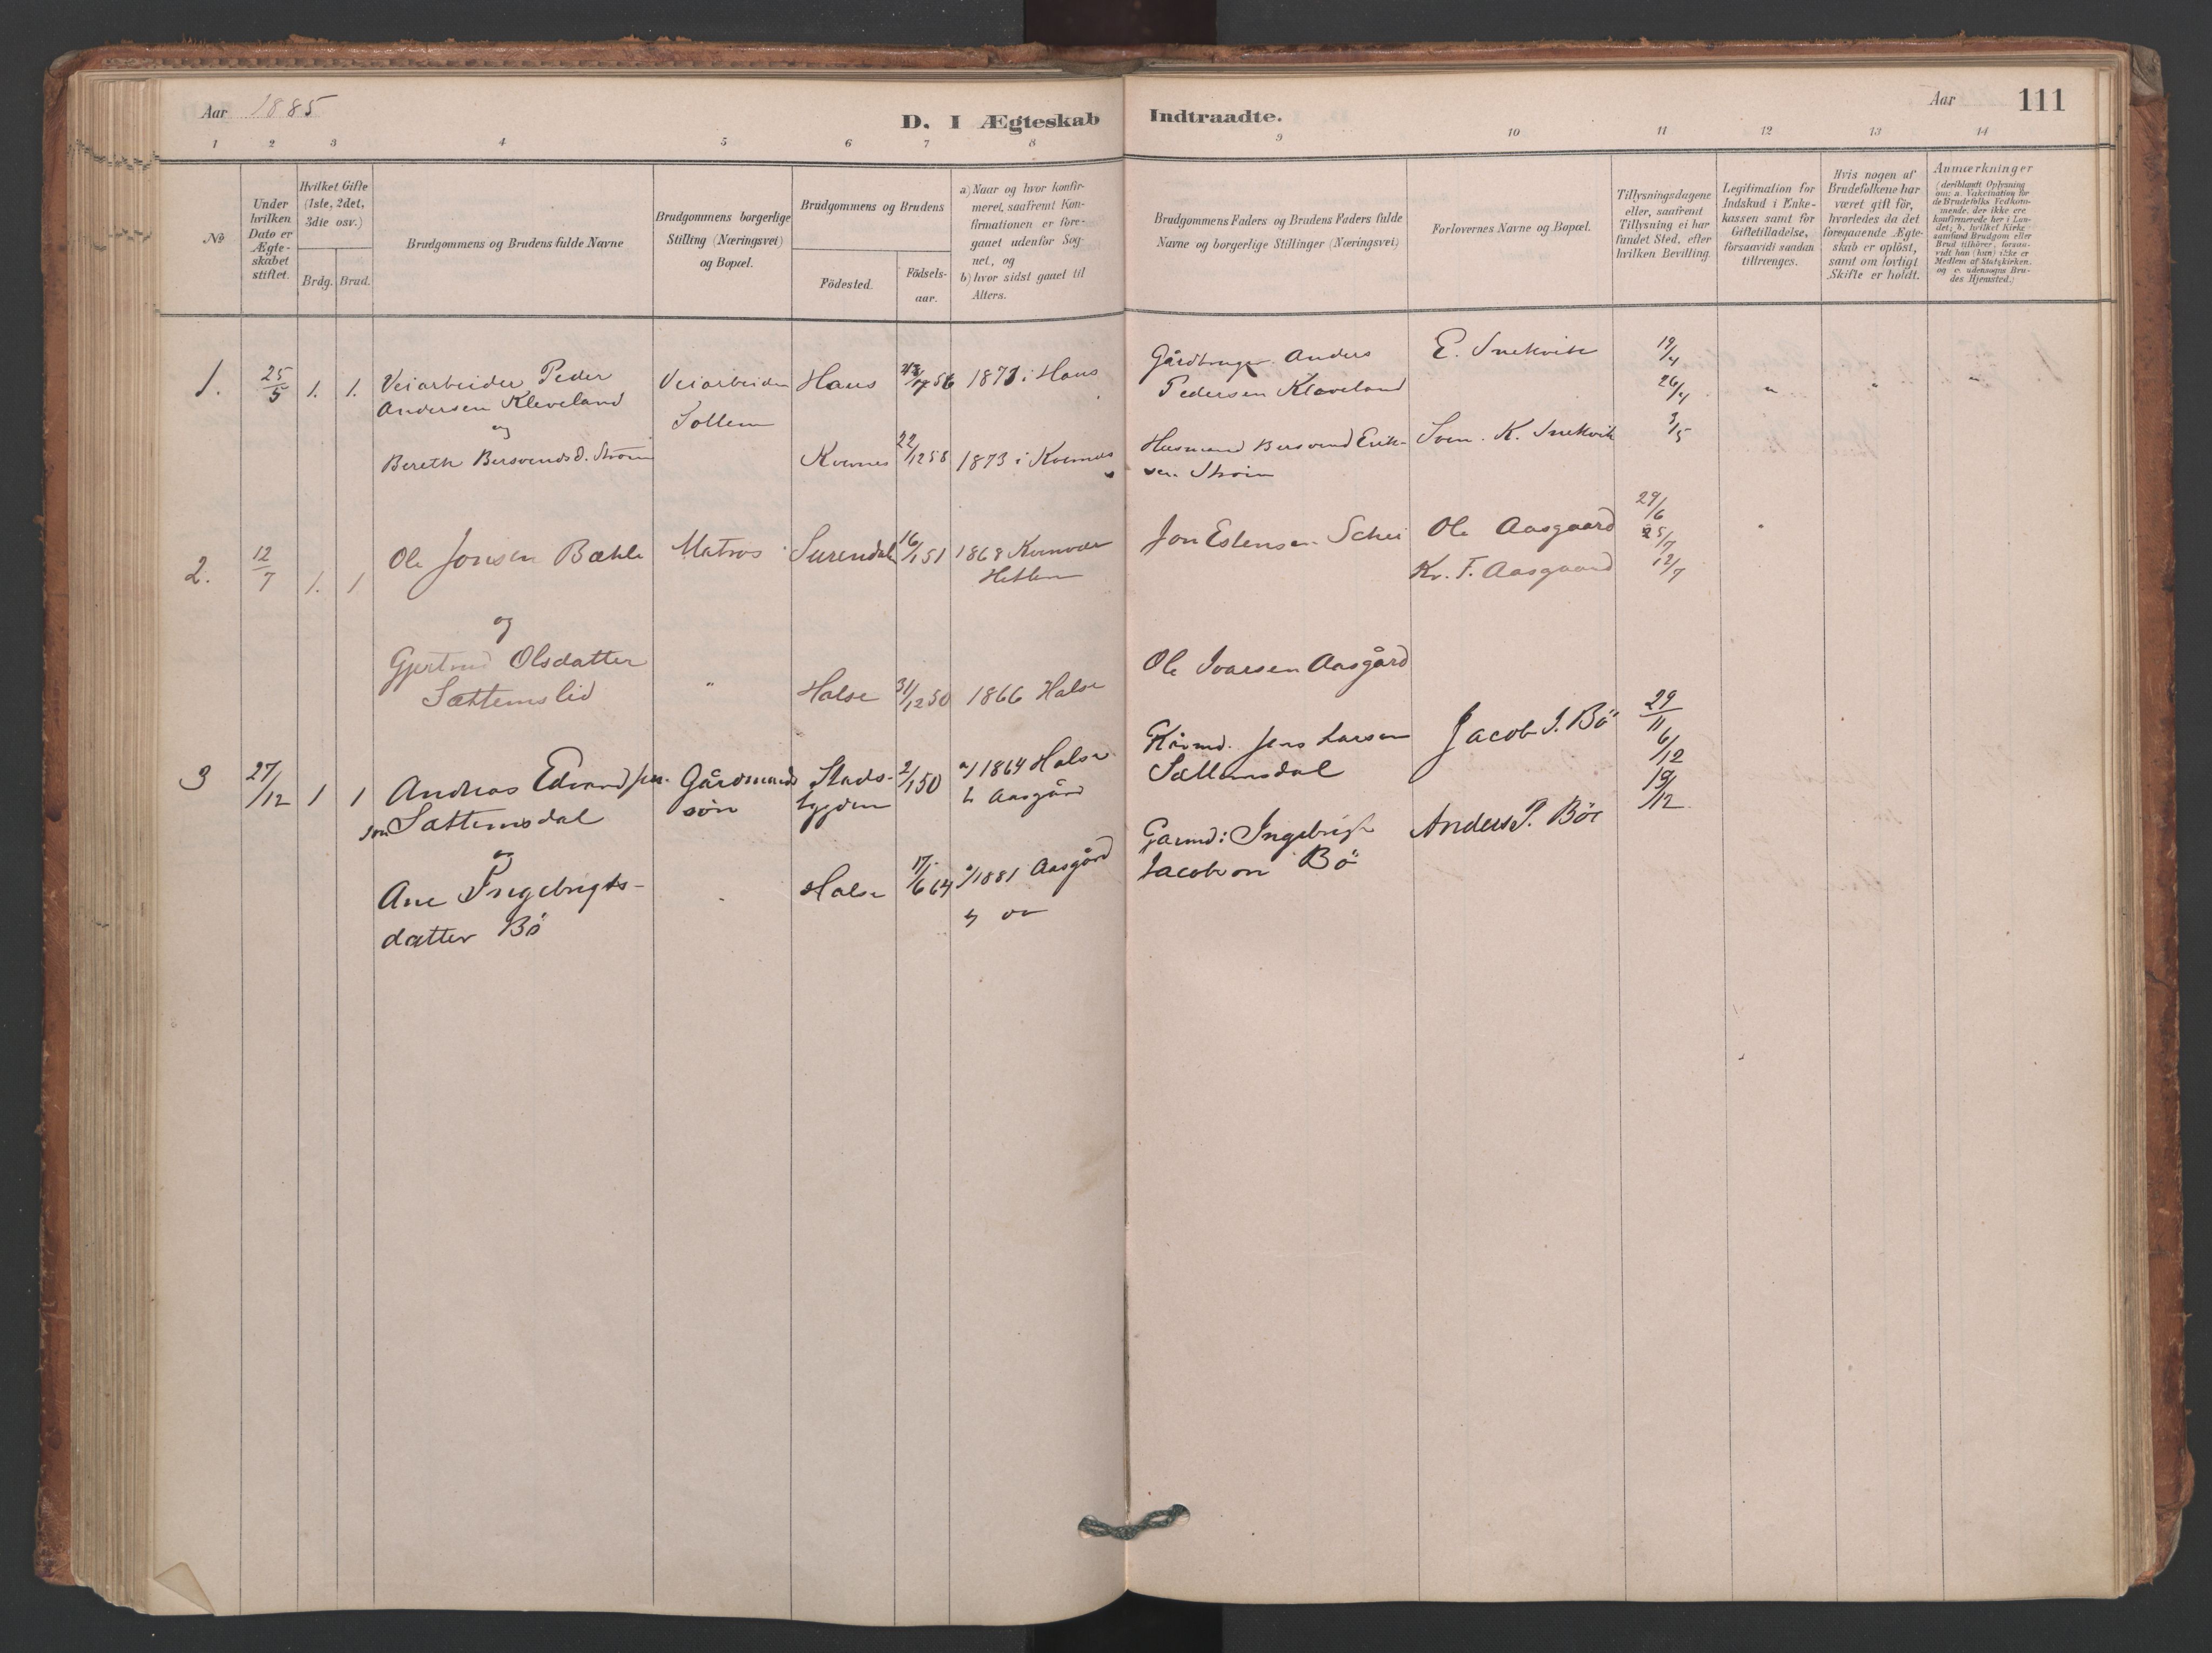 Aar 1885
D. I Ægteskab Indtraadte.
Aar 111
1 2 3 4 5 6 7 8 9 10 11 12 13 14
No
Under hvilken Dato er Ægteskabet stiftet.
Hvilket Gifte (1ste, 2det, 3die osv.)
Brdg. Brud.
Brudgommens og Brudens fulde Navne
Brudgommens borgerlige Stilling (Næringsvei) og Bopæl.
Brudgommens og Brudens
Födested.
Födsels-aar.
a) Naar og hvor konfirmeret, saafremt Konfirmationen er foregaaet udenfor Sognet, og
b) hvor sidst gaaet til Alters.
Brudgommens Faders og Brudens Faders fulde Navne og borgerlige Stillinger (Næringsvei)
Forlovernes Navne og Bopæl.
Tillysningsdagene eller, saafremt Tillysning ei har fundet Sted, efter hvilken Bevilling.
Legitimation for Indskud i Enkekassen samt for Giftetilladelse, forsaavidt saadan tiltrænges.
Hvis nogen af Brudefolkene har været gift för, hvorledes da det foregaaende Ægteskab er oplöst, samt om lovligt Skifte er holdt.
Anmærkninger (deriblandt Oplysning om: a. Vakcination for de Brudefolks Vedkommende, der ikke ere konfirmerede her i Landet; b. hvilket Kirkesamfund Brudgom eller Brud tilhörer, forsaavidt han (hun) ikke er Medlem af Statskirken, og c. udensogns Brudes Hjemsted.)
1. 25/5 1. 1. Veiarbeider Peder
Andersen Kleveland
og
Bereth Bersvendsd. Ström
Veiarbeider
Sollem
Haus 56 1871 i Haus
Kvernes 22/12 58 1873 i Kvernes
Gårdbruger Anders
Pedersen Klaveland
Husmand Bersvend Erik-
sen Ström
E. Snekvik
Sven. K. Snekvik
19/4
26/4
3/5
2. 12/7 1. 1 Ole Jonsen Bæhle
og
Gjertrud Olsdatter
Sættemslid
Matros
Surendale 16/1 51 1868
Halse 31/12 50 1866 Halse
Jon Estensen Schei
Ole Ivarsen Aasgård
Ole Aasgaard
Kr. F. Aasgaard
29/6
5/7
12/7
3 27/12 1 1 Andreas Edvard Jen-
sen Sættemsdal
og
Ane Ingebrigts-
datter Bö
Gårdmands
sön
Stads-
bygden
2/1 50 a/ 1864 Halse
b Aasgård
Halse 17/6 64 a/ 1881 Aasgård
Jens Larsen
Sættemsdal
Garmd: Ingebrigt
Jacobsen Bö
Jacob J. Bö
Anders P. Böe
29/11
6/12
19/12